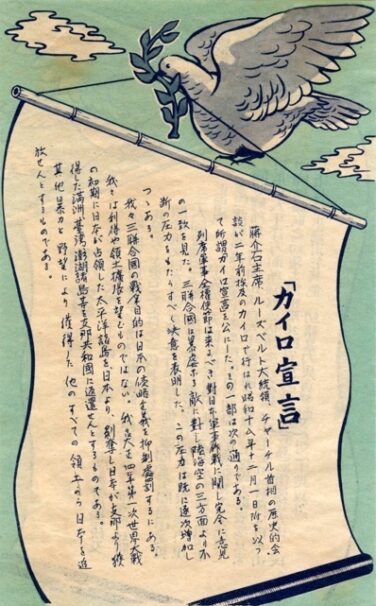 「カイロ宣言」
蔣介石主席、ルーズベルト大統領、チャーチル首相の歴史的会
談が二年前埃及のカイロで行はれ昭和十八年十二月一日附を以つ
て所謂カイロ宣言を公にした。その一部は次の通りである。
列席軍事全権使節は来るべき対日軍事作戦に関し完全に意見
の一致を見た。三聯合國は暴虐なる敵に對し陸海空の三方面より不
断の圧力をもたらすべく決意を表明した。この圧力は既に逐次増加し
つゝある。
我々三聯合國の戦争目的は日本の侵略主義を抑制膺討するにある。
我々は利得や領土権張を望むものではない。我々は大正四年第一次世界大戦
の初期に日本が占領した太平洋諸島を日本より剝奪し日本が支那より獲
得した満洲臺湾澎湖諸島等を支那共和國に返還せんとするものである。
其他暴力と野望により獲得した他のすべての領土から日本を追
放せんとするものである。